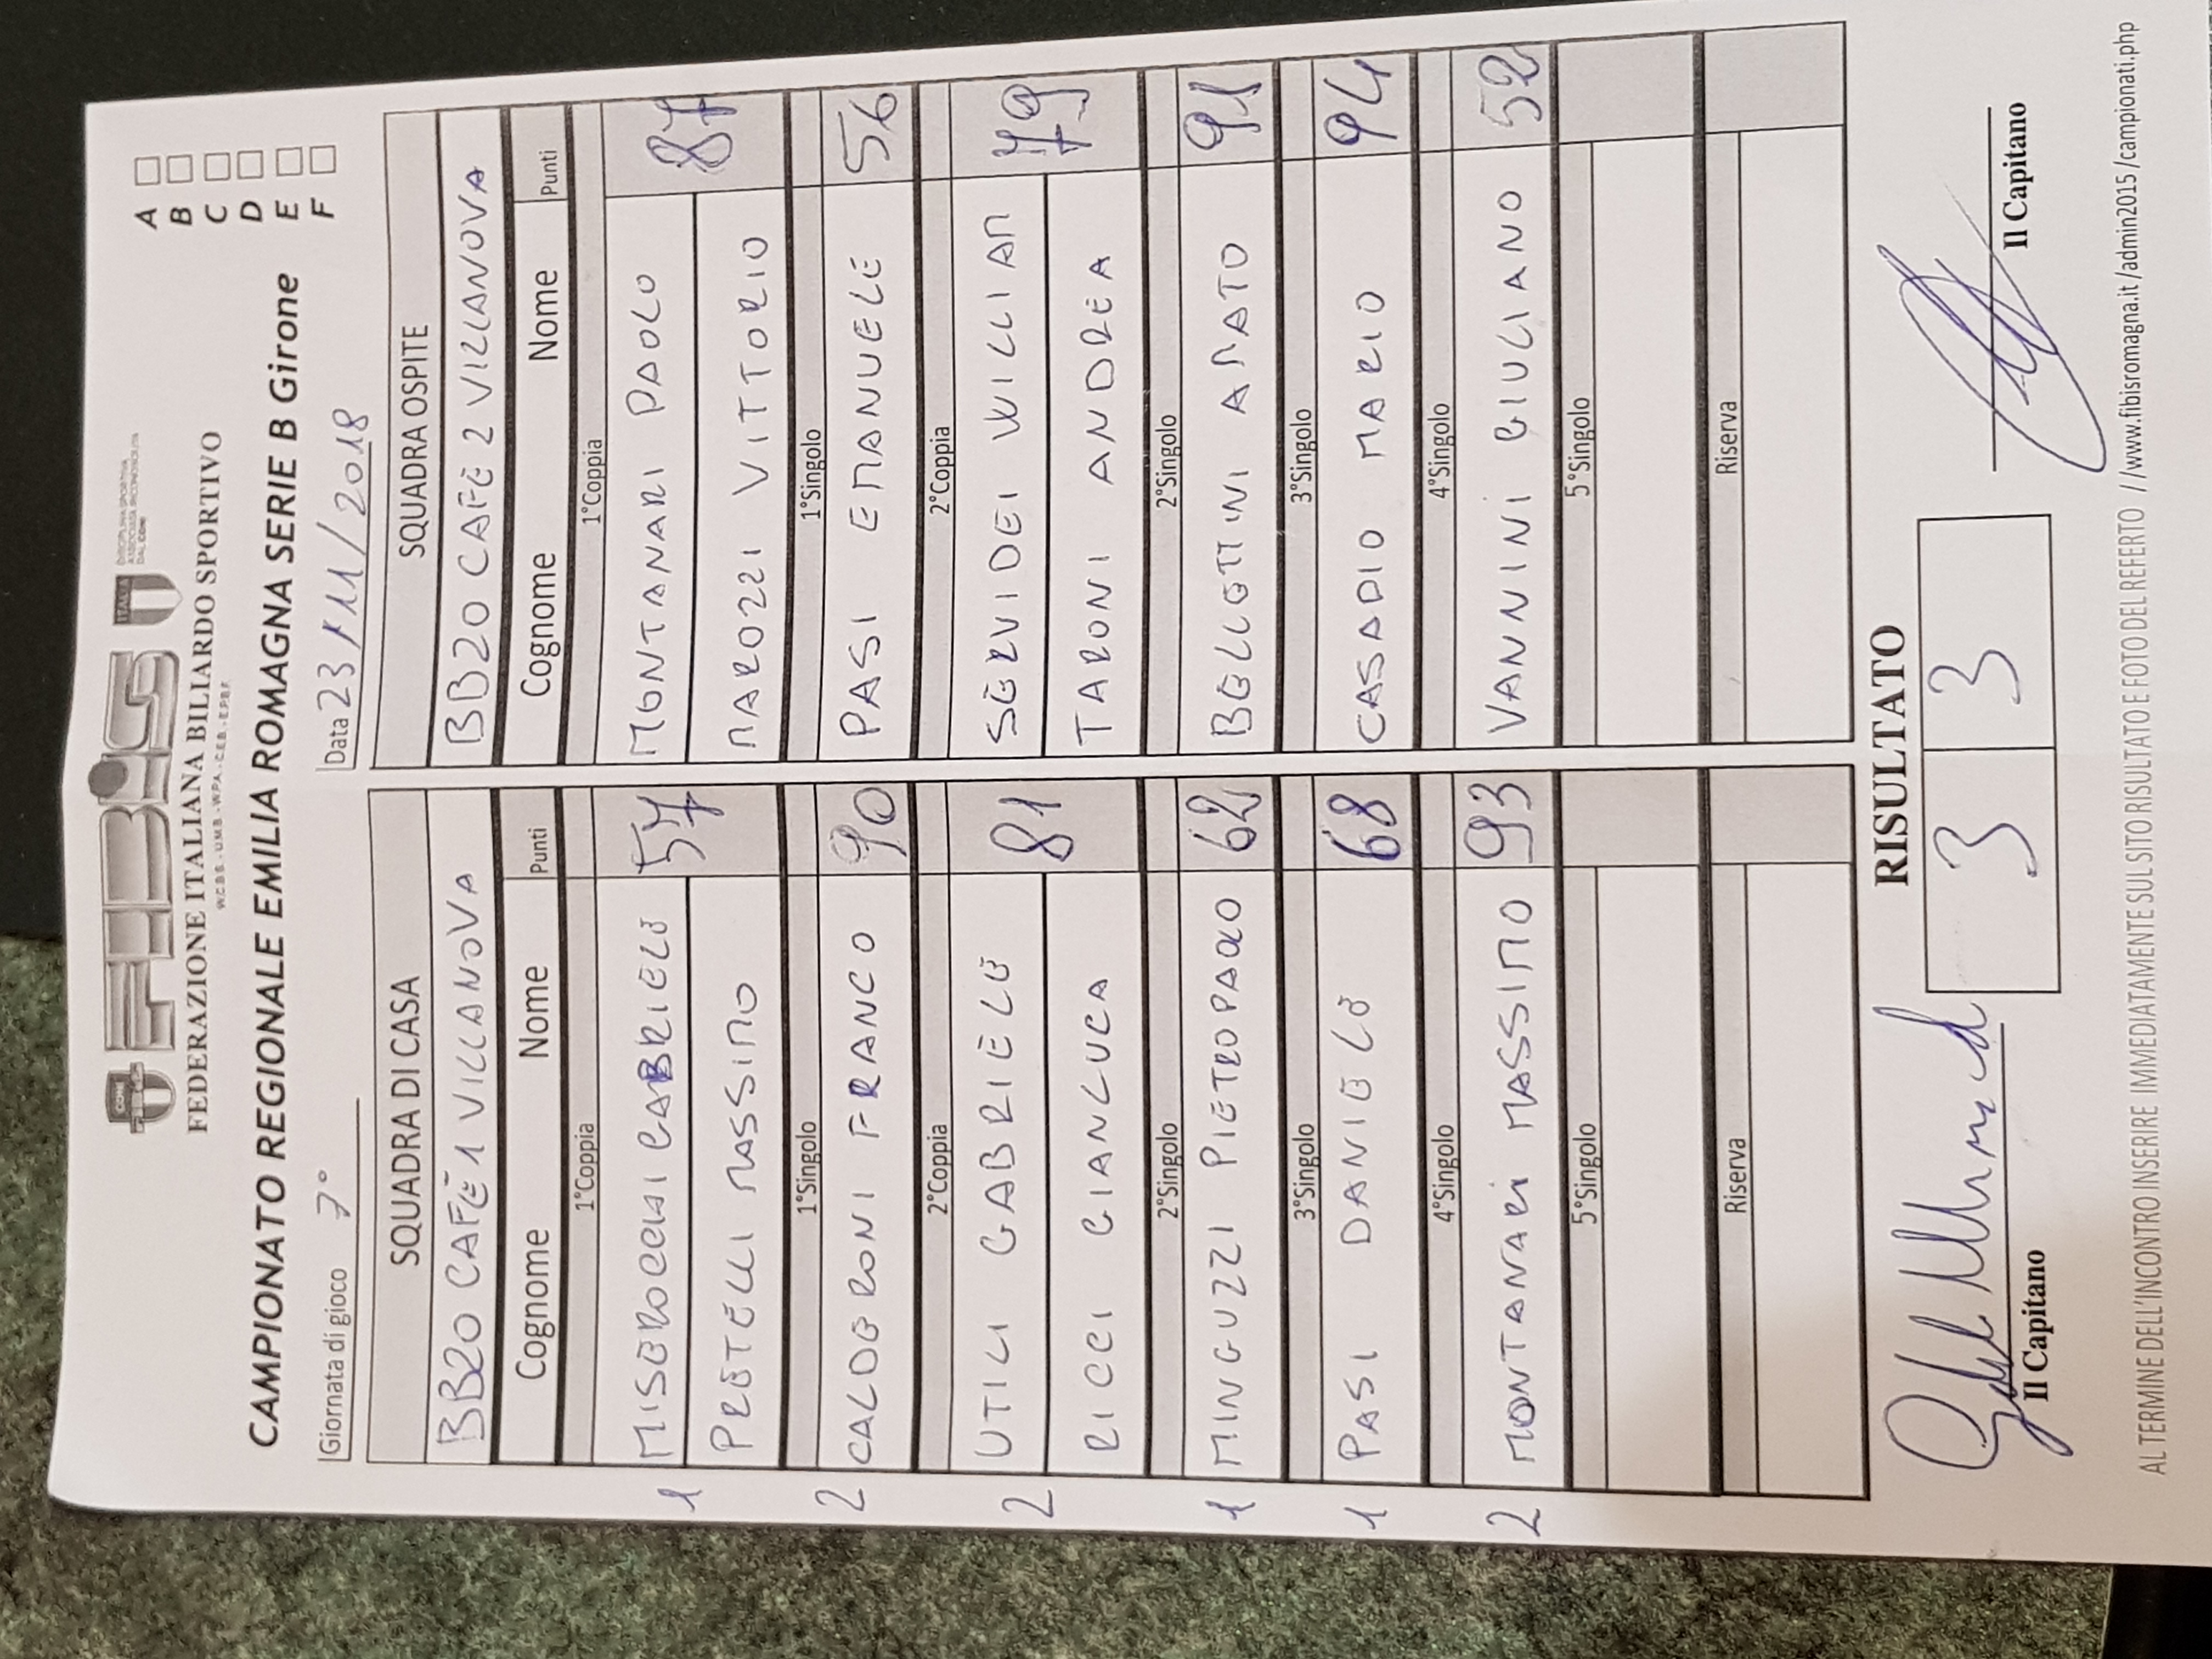 CONI
FEDERAZIONE ITALIANA BILIARDO SPORTIVO
W.C.B.S. - U.M.B. - W.P.A. - C.E.B. - E.P.B.F.
FIBiS
ITALIA
DISCIPLINA SPORTIVA
ASSOCIATA RICONOSCIUTA
DAL CONI
CAMPIONATO REGIONALE EMILIA ROMAGNA SERIE B Girone
A
B
C
D
E
F
Giornata di gioco 7° Data 23/11/2018
SQUADRA DI CASA SQUADRA OSPITE
BB20 CAFÈ 1 VILLANOVA BB20 CAFÈ 2 VILLANOVA
Cognome Nome Punti Cognome Nome Punti
1°Coppia 1°Coppia
1 MISEROCCHI GABRIELE 57 MONTANARI PAOLO 87
PRETELLI MASSIMO MAROZZI VITTORIO
1°Singolo 1°Singolo
2 CALDERONI FRANCO 90 PASI EMANUELE 56
2°Coppia 2°Coppia
2 UTILI GABRIELE 81 SERVIDEI WILLIAM 79
RICCI GIANLUCA TARONI ANDREA
2°Singolo 2°Singolo
1 MINGUZZI PIETROPAOLO 62 BELLETTINI AMATO 91
3°Singolo 3°Singolo
1 PASI DANIELE 68 CASADIO MARIO 94
4°Singolo 4°Singolo
2 MONTANARI MASSIMO 93 VANNINI GIULIANO 52
5°Singolo 5°Singolo
Riserva Riserva
RISULTATO
3 3
Il Capitano Il Capitano
AL TERMINE DELL'INCONTRO INSERIRE IMMEDIATAMENTE SUL SITO RISULTATO E FOTO DEL REFERTO //www.fibisromagna.it/admin2015/campionati.php